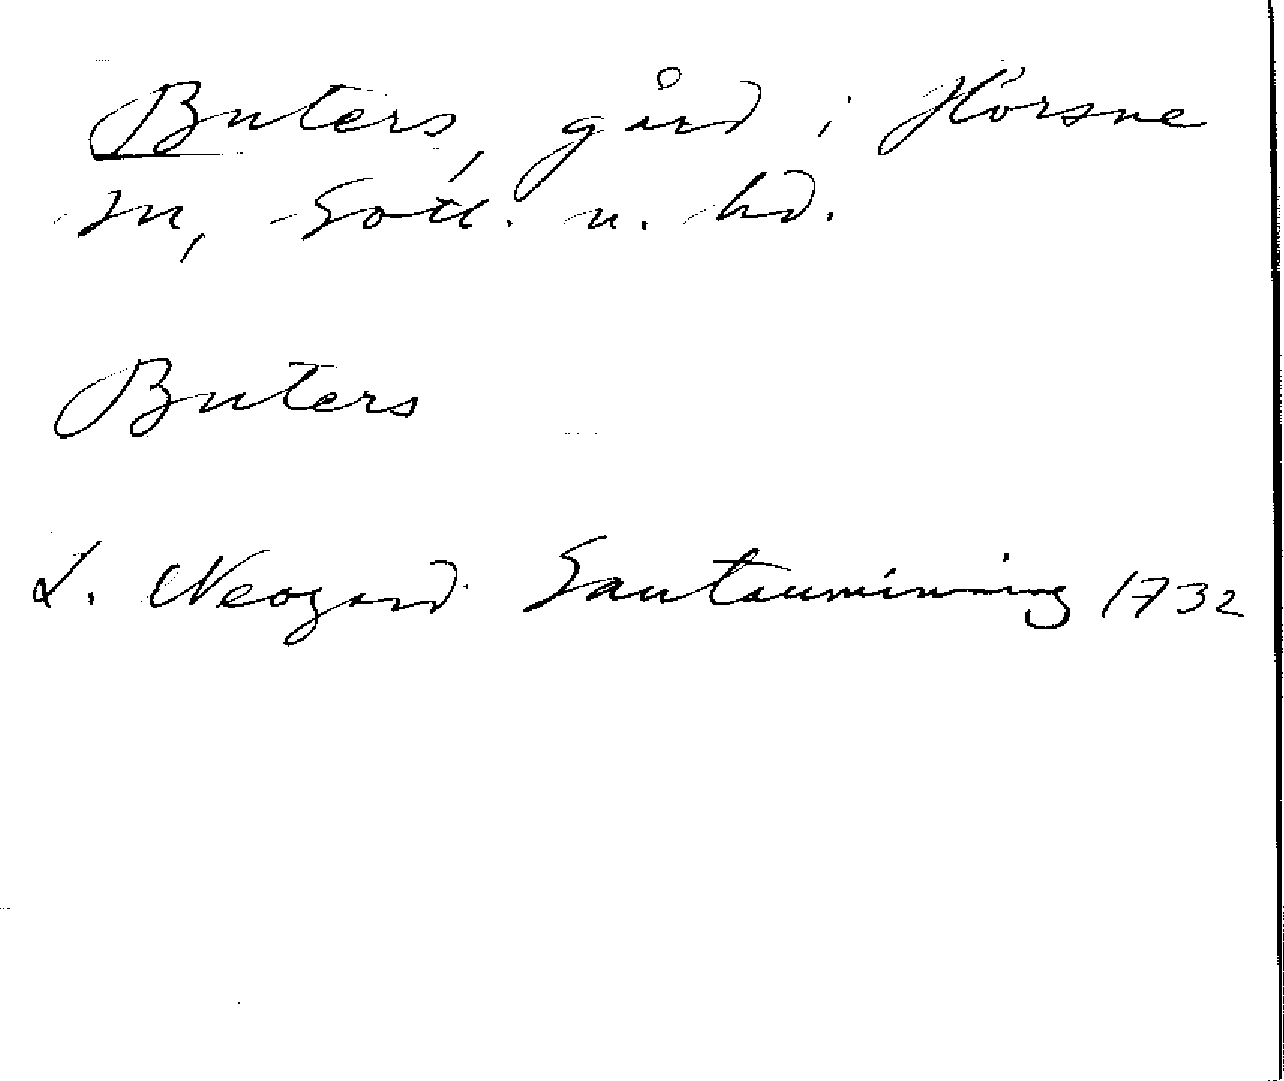 Buters, gård i Hörsne
sn, Gotl. n. hd.
Buters
L. Neogard Gautauminning 1732